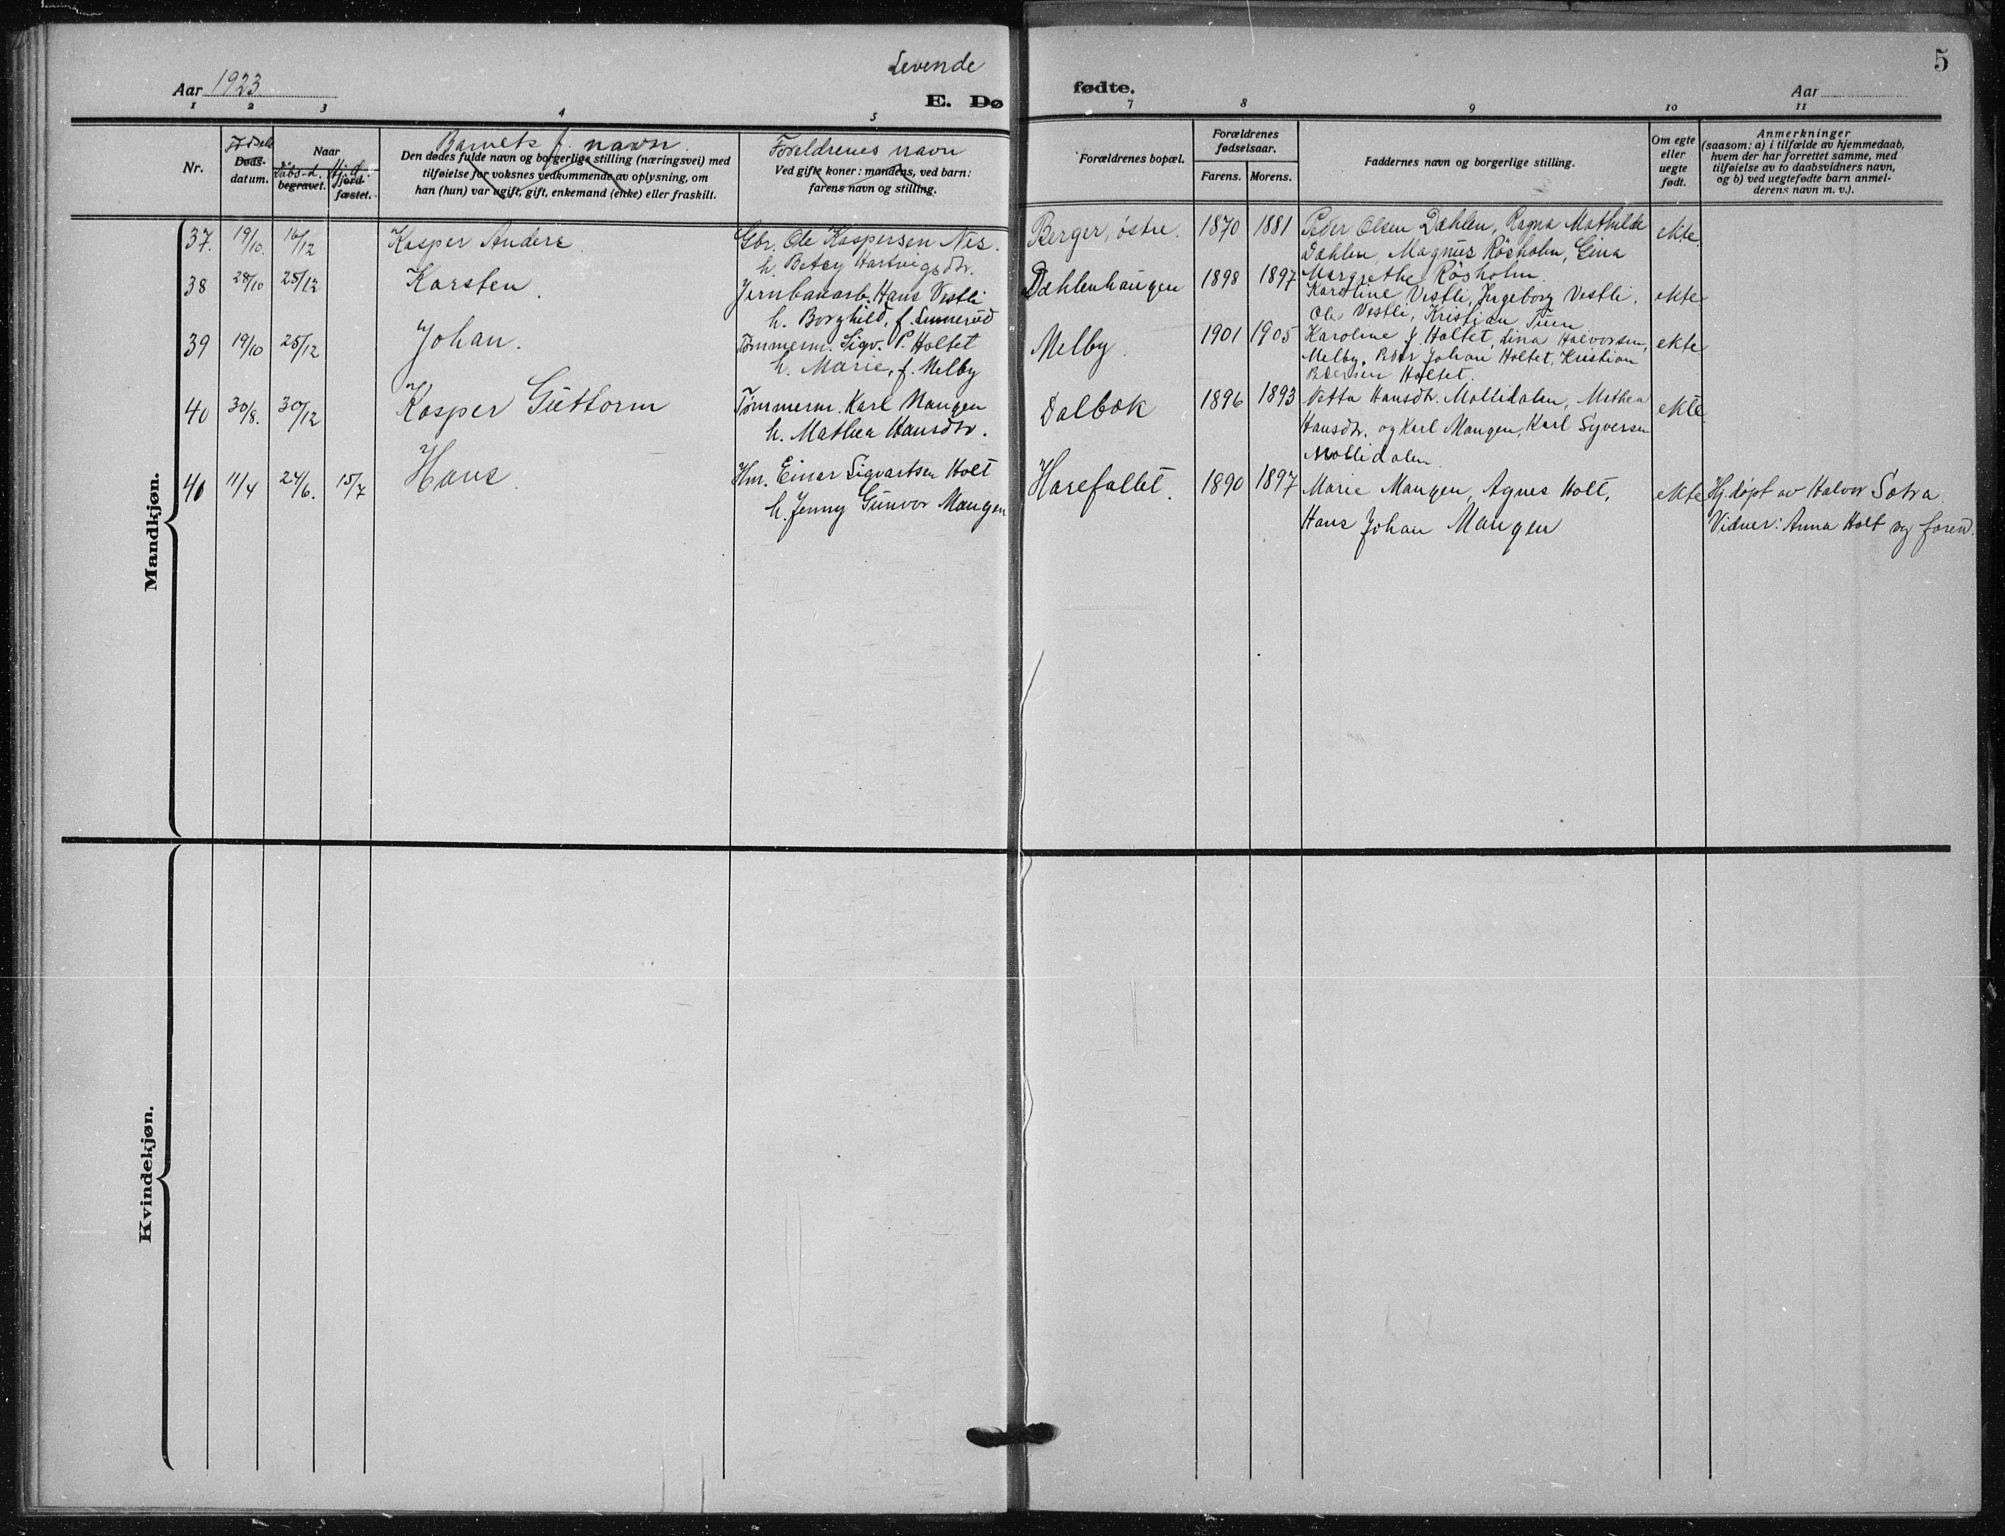 Levende
5
Aar 1923
fødte.
Aar
E. Dø
1 2 3 4 5 7 8 9 10 11
Nr.
Fødsels
Døds-
datum.
Naar
Dåbs-d.
begravet.
Hj.d.
jord-
fæstet.
Barnets f. navn.
Den dødes fulde navn og borgerlige stilling (næringsvei) med
tilføielse for voksnes vedkommende av oplysning, om
han (hun) var ugift, gift, enkemand (enke) eller fraskilt.
Foreldrenes navn
Ved gifte koner: mandens, ved barn:
farens navn og stilling.
Forældrenes bopæl.
Forældrenes
fødselsaar.
Farens. Morens.
Faddernes navn og borgerlige stilling.
Om egte
eller
uegte
født.
Anmerkninger
(saasom: a) i tilfælde av hjemmedaab,
hvem der har forrettet samme, med
tilføielse av to daabsvidners navn,
og b) ved uegtefødte barn anmel-
derens navn m. v.).
Mandkjøn.
37. 19/10. 16/12 Kasper Anders Gbr. Ole Kaspersen Nes. Berger, østre. 1870 1881 Peder Olsen Dæhlen, Ragna Mathilde ekte.
h. Betsy Hartvigsdtr. Dæhlen, Magnus Røsholm, Gina
Margrethe Røsholm.
38 28/10 25/12 Karsten. Jernbanearb. Hans Vestli Dæhlenhaugen 1898 1897 Karoline Vestli, Ingeborg Vestli, ekte
h. Borghild, f. Linnerud Ole Vestli, Kristian Tuen
39 19/10 25/12 Johan. Tømmerm. Sigv. P. Holtet Melby. 1901 1905 Karoline J Holtet, Lina Halvorsen, ekte
h. Marie, f. Melby Melby, Peder Johan Holtet, Kristian
Pedersen Holtet.
40 30/8. 30/12 Kasper Guttorm Tømmerm. Karl Mangen Dalbæk 1896 1893 Hansdtr. Mollidalen, Mathea ekte
h. Mathea Hansdtr. Hansdtr. og Karl Mangen, Karl Syversen
Mollidalen.
41 11/4 24/6. 15/7 Hans. Hm. Einar Sigvartsen Holt Harefallet. 1890 1897 Marie Mangen, Agnes Holt, ekte Hj.døpt av Halvor Sotra.
h. Jenny Gunvor Mangen Hans Johan Mangen Vidner: Anna Holt og foreld.
Kvindekjøn.